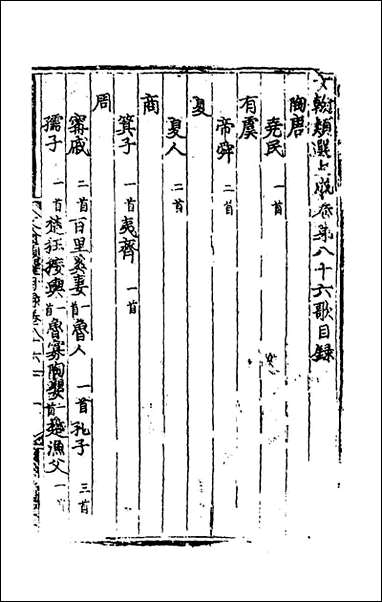 文翰類選大成卷第八十六歌目錄
陶唐
堯民 一首
有虞
帝舜 二首
夏
夏人 二首
商
箕子 一首 夷齊 一首
周
甯戚 二首 百里奚妻 一首 魯人 一首 孔子 三首
孺子 一首 楚狂接輿 一首 魯寡陶嬰 一首 楚漁父 一首